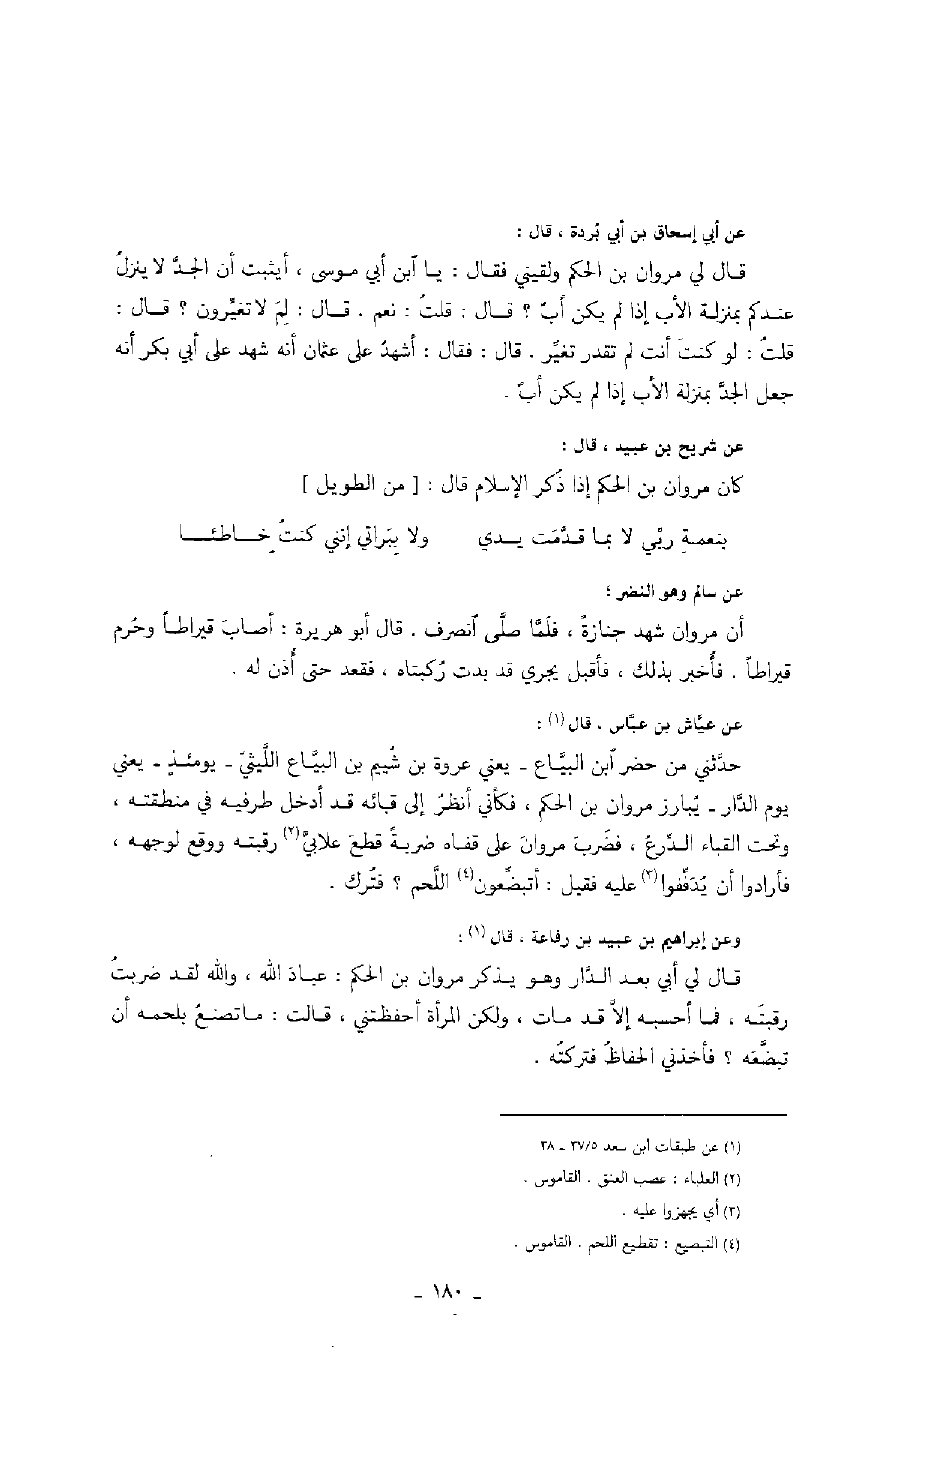 عن أبي إسحاق بن أبي بُردة ، قال :
قال لي مروان بن الحكم ولقيني فقال : يا آبن أبي موسى ، أيثبت أن الجدَّ لا ينزلُ
عندكم بمنزلة الأب إذا لم يكن أبٌ ؟ قال : قلتُ : نعم . قال : لِمَ لا تغيِّرون ؟ قال :
قلتُ : لو كنتَ أنت لم تقدر تغيِّر . قال : فقال : أشهدُ على عثمان أنه شهد على أبي بكر أنه
جعل الجدَّ بمنزلة الأب إذا لم يكن أبٌ .
عن شريح بن عبيد ، قال :
كان مروان بن الحكم إذا ذُكر الإسلام قال : [ من الطويل ]
بنعمةِ ربِّي لا بما قدَّمَت يدي ولا ببَراتي إنني كنتُ خاطئا
عن سالم وهو النضر ؛
أن مروان شهد جنازةً ، فلمَّا صلَّى آنصرف . قال أبو هريرة : أصابَ قيراطاً وحُرم
قيراطاً . فأُخبر بذلك ، فأقبل يجري قد بدت رُكبتاه ، فقعد حتى أُذن له .
عن عيَّاش بن عبَّاس ، قال (١) :
حدَّثني من حضر آبن البيَّاع - يعني عروة بن شُييم بن البيَّاع اللَّيثيّ - يومئذٍ - يعني
يوم الدَّار - يُبارز مروان بن الحكم ، فكأني أنظرُ إلى قبائه قد أدخل طرفيه في منطقته ،
وتحت القباء الدِّرعُ ، فضَربَ مروانَ على قفاه ضربةً قطعَ علابيَّ (٢) رقبته ووقع لوجهه ،
فأرادوا أن يُدَفِّفوا (٣) عليه فقيل : أتبضِّعون (٤) اللَّحم ؟ فتُرك .
وعن إبراهيم بن عبيد بن رفاعة ، قال (١) :
قال لي أبي بعد الدَّار وهو يذكر مروان بن الحكم : عبادَ الله ، والله لقد ضربتُ
رقبتَه ، فما أحسبه إلاَّ قد مات ، ولكن المرأة أحفظتني ، قالت : ما تصنعُ بلحمه أن
تبضِّعَه ؟ فأخذني الحفاظُ فتركتُه .
(١) عن طبقات ابن سعد ٣٧/٥ - ٣٨
(٢) العلباء : عصب العنق . القاموس .
(٣) أي يجهزوا عليه .
(٤) التبضيع : تقطيع اللحم . القاموس .
- ١٨٠ -